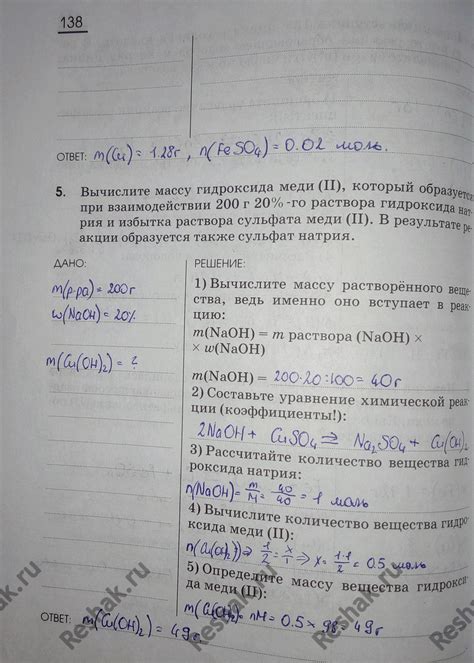 138
ОТВЕТ: m(Cu) = 1.28г, n(FeSO₄) = 0.02 моль.
5. Вычислите массу гидроксида меди (II), который образуется
при взаимодействии 200 г 20%-го раствора гидроксида нат-
рия и избытка раствора сульфата меди (II). В результате ре-
акции образуется также сульфат натрия.
ДАНО:
m(р-ра) = 200г
w(NaOH) = 20%
m(Cu(OH)₂) = ?
РЕШЕНИЕ:
1) Вычислите массу растворённого веще-
ства, ведь именно оно вступает в реак-
цию:
m(NaOH) = m раствора (NaOH) ×
× w(NaOH)
m(NaOH) = 200·20:100 = 40г
2) Составьте уравнение химической реак-
ции (коэффициенты!):
2NaOH + CuSO₄ ⇒ Na₂SO₄ + Cu(OH)₂
3) Рассчитайте количество вещества гид-
роксида натрия:
n(NaOH) = m/M = 40/40 = 1 моль
4) Вычислите количество вещества гидро-
ксида меди (II):
n(Cu(OH)₂) ⇒ 1/2 = x/1 ⇒ x = 1·1/2 = 0.5 моль
5) Определите массу вещества гидрокси-
да меди (II):
m(Cu(OH)₂ = nM = 0.5 × 98 = 49г
ОТВЕТ: m(Cu(OH)₂) = 49г
Reshak.ru
Reshak.ru
Reshak